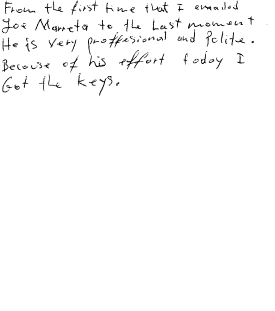 From the first time that I emailed
Joe Marreta to the last moment.
He is very proffesional and Polite.
Because of his effort today I
Got the keys.